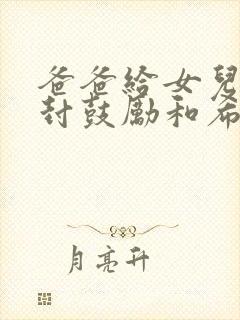 爸爸給女兒
封鼓勵和希
月亮升